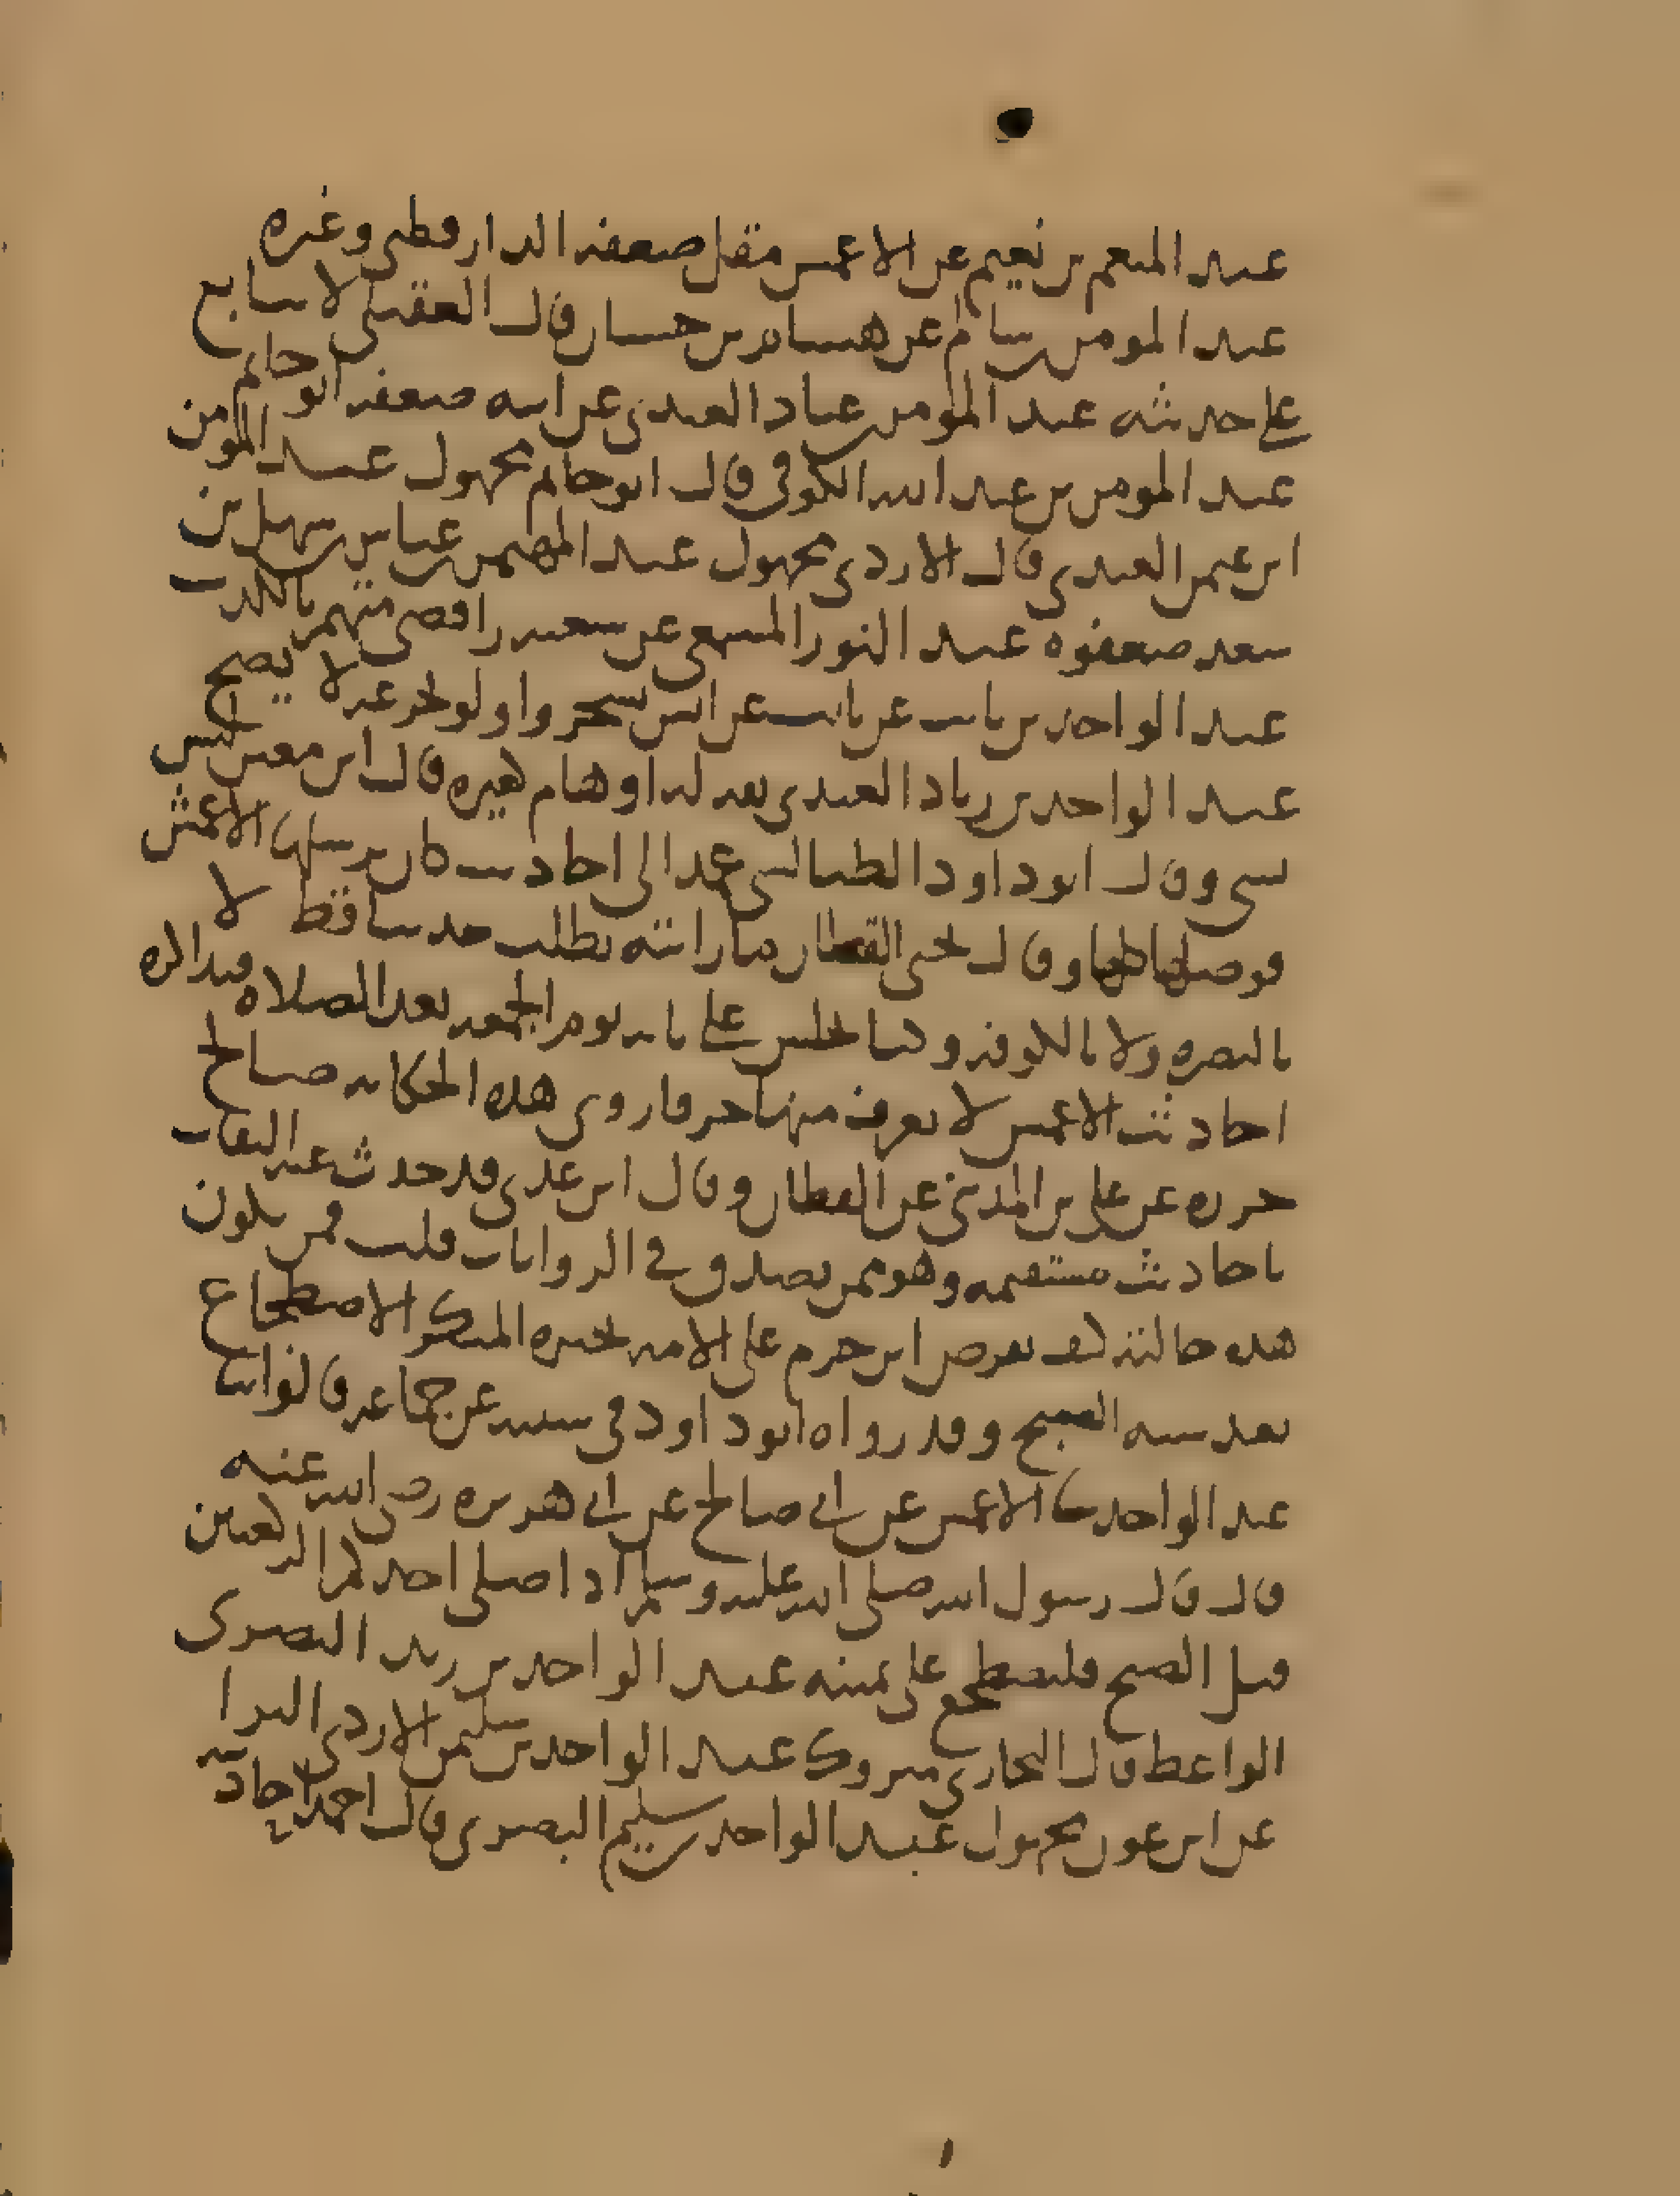 عبد المنعم بن نعيم عن الاعمش مقل ضعفه الدارقطني وغيره
عبد المومن بن سالم عن هشام بن حسان قال العقيلي لا يتابع
على حديثه عبد المومن بن عباد العبدي عن ابيه ضعفه ابو حاتم
عبد المومن بن عبد الله الكوفي قال ابو حاتم مجهول عبد المومن
ابن عمر العبدي قال الازدي مجهول عبد المهيمن بن عباس بن سهل بن
سعد ضعفوه عبد النور المسمعي عن سعيد رافضي متهم بالكذب
عبد الواحد بن ثابت عن ثابت عن انس تسحروا ولو بجرعه لا يصح
عبد الواحد بن زياد العبدي ثقه له اوهام كغيره قال ابن معين ليس
بشي وقال ابو داود الطيالسي عمد الى احاديث كان يرسلها الاعمش
فوصلها كلها وقال يحيى القطان ما رايته يطلب حديثا قط لا
بالبصره ولا بالكوفه وكنا نجلس على بابه يوم الجمعه بعد الصلاه فيذاكره
احاديث الاعمش لا يعرف منها حرفا روى هذه الحكايه صالح
جزره عن علي بن المديني عن القطان وقال ابن عدي قد حدث عنه الثقات
باحاديث مستقيمه وهو ممن يصدق في الروايات قلت فمن يكون
هذه حالته كيف يعرض ابن حزم على الامه بخبره المنكر الاضطجاع
بعد سنه الصبح وقد رواه ابو داود في سننه عن جماعه قالوا ثنا
عبد الواحد ثنا الاعمش عن ابي صالح عن ابي هريره رضي الله عنه
قال قال رسول الله صلى الله عليه وسلم اذا صلى احدكم الركعتين
قبل الصبح فليضطجع على يمينه عبد الواحد بن زيد البصري
الواعظ قال البخاري متروك عبد الواحد بن سليمن الازدي البرا
عن ابن عون مجهول عبد الواحد بن سليم البصري قال احمد احاديثه